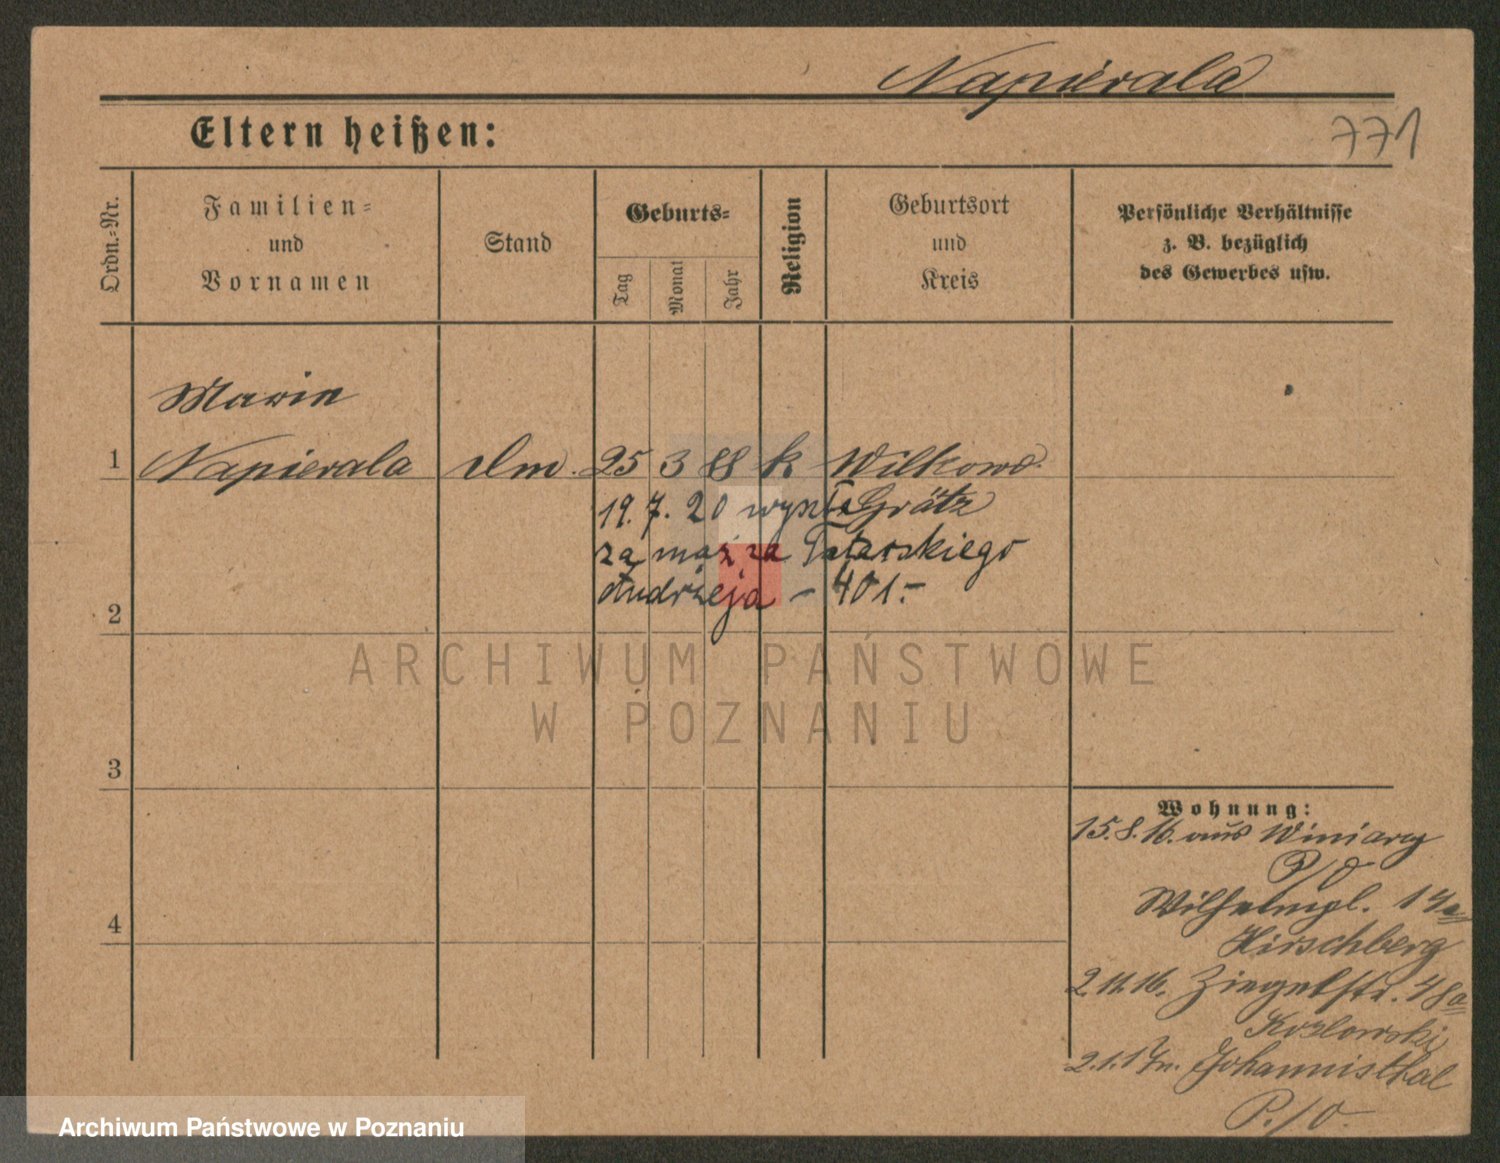 Napierala
771
Eltern heißen:
Ordn.-Nr.
Familien-
und
Vornamen
Stand
Geburts-
Tag
Monat
Jahr
Religion
Geburtsort
und
Kreis
Persönliche Verhältnisse
z. B. bezüglich
des Gewerbes usw.
Marie
1 Napierala 25 3 88 k Wilkowo
19. 7. 20 wyszła Grätz
za mąż za Tatarskiego
Andrzeja - 401.-
2
3
4
ARCHIWUM PAŃSTWOWE
W POZNANIU
Wohnung:
15.8.16. aus Winiary
P/O
Wilhelmpl. 14a
Hirschberg
2.11.16. Ziegelstr. 48a
Kozlowski
2.1.17 n. Johannisthal
P./O.
Archiwum Państwowe w Poznaniu